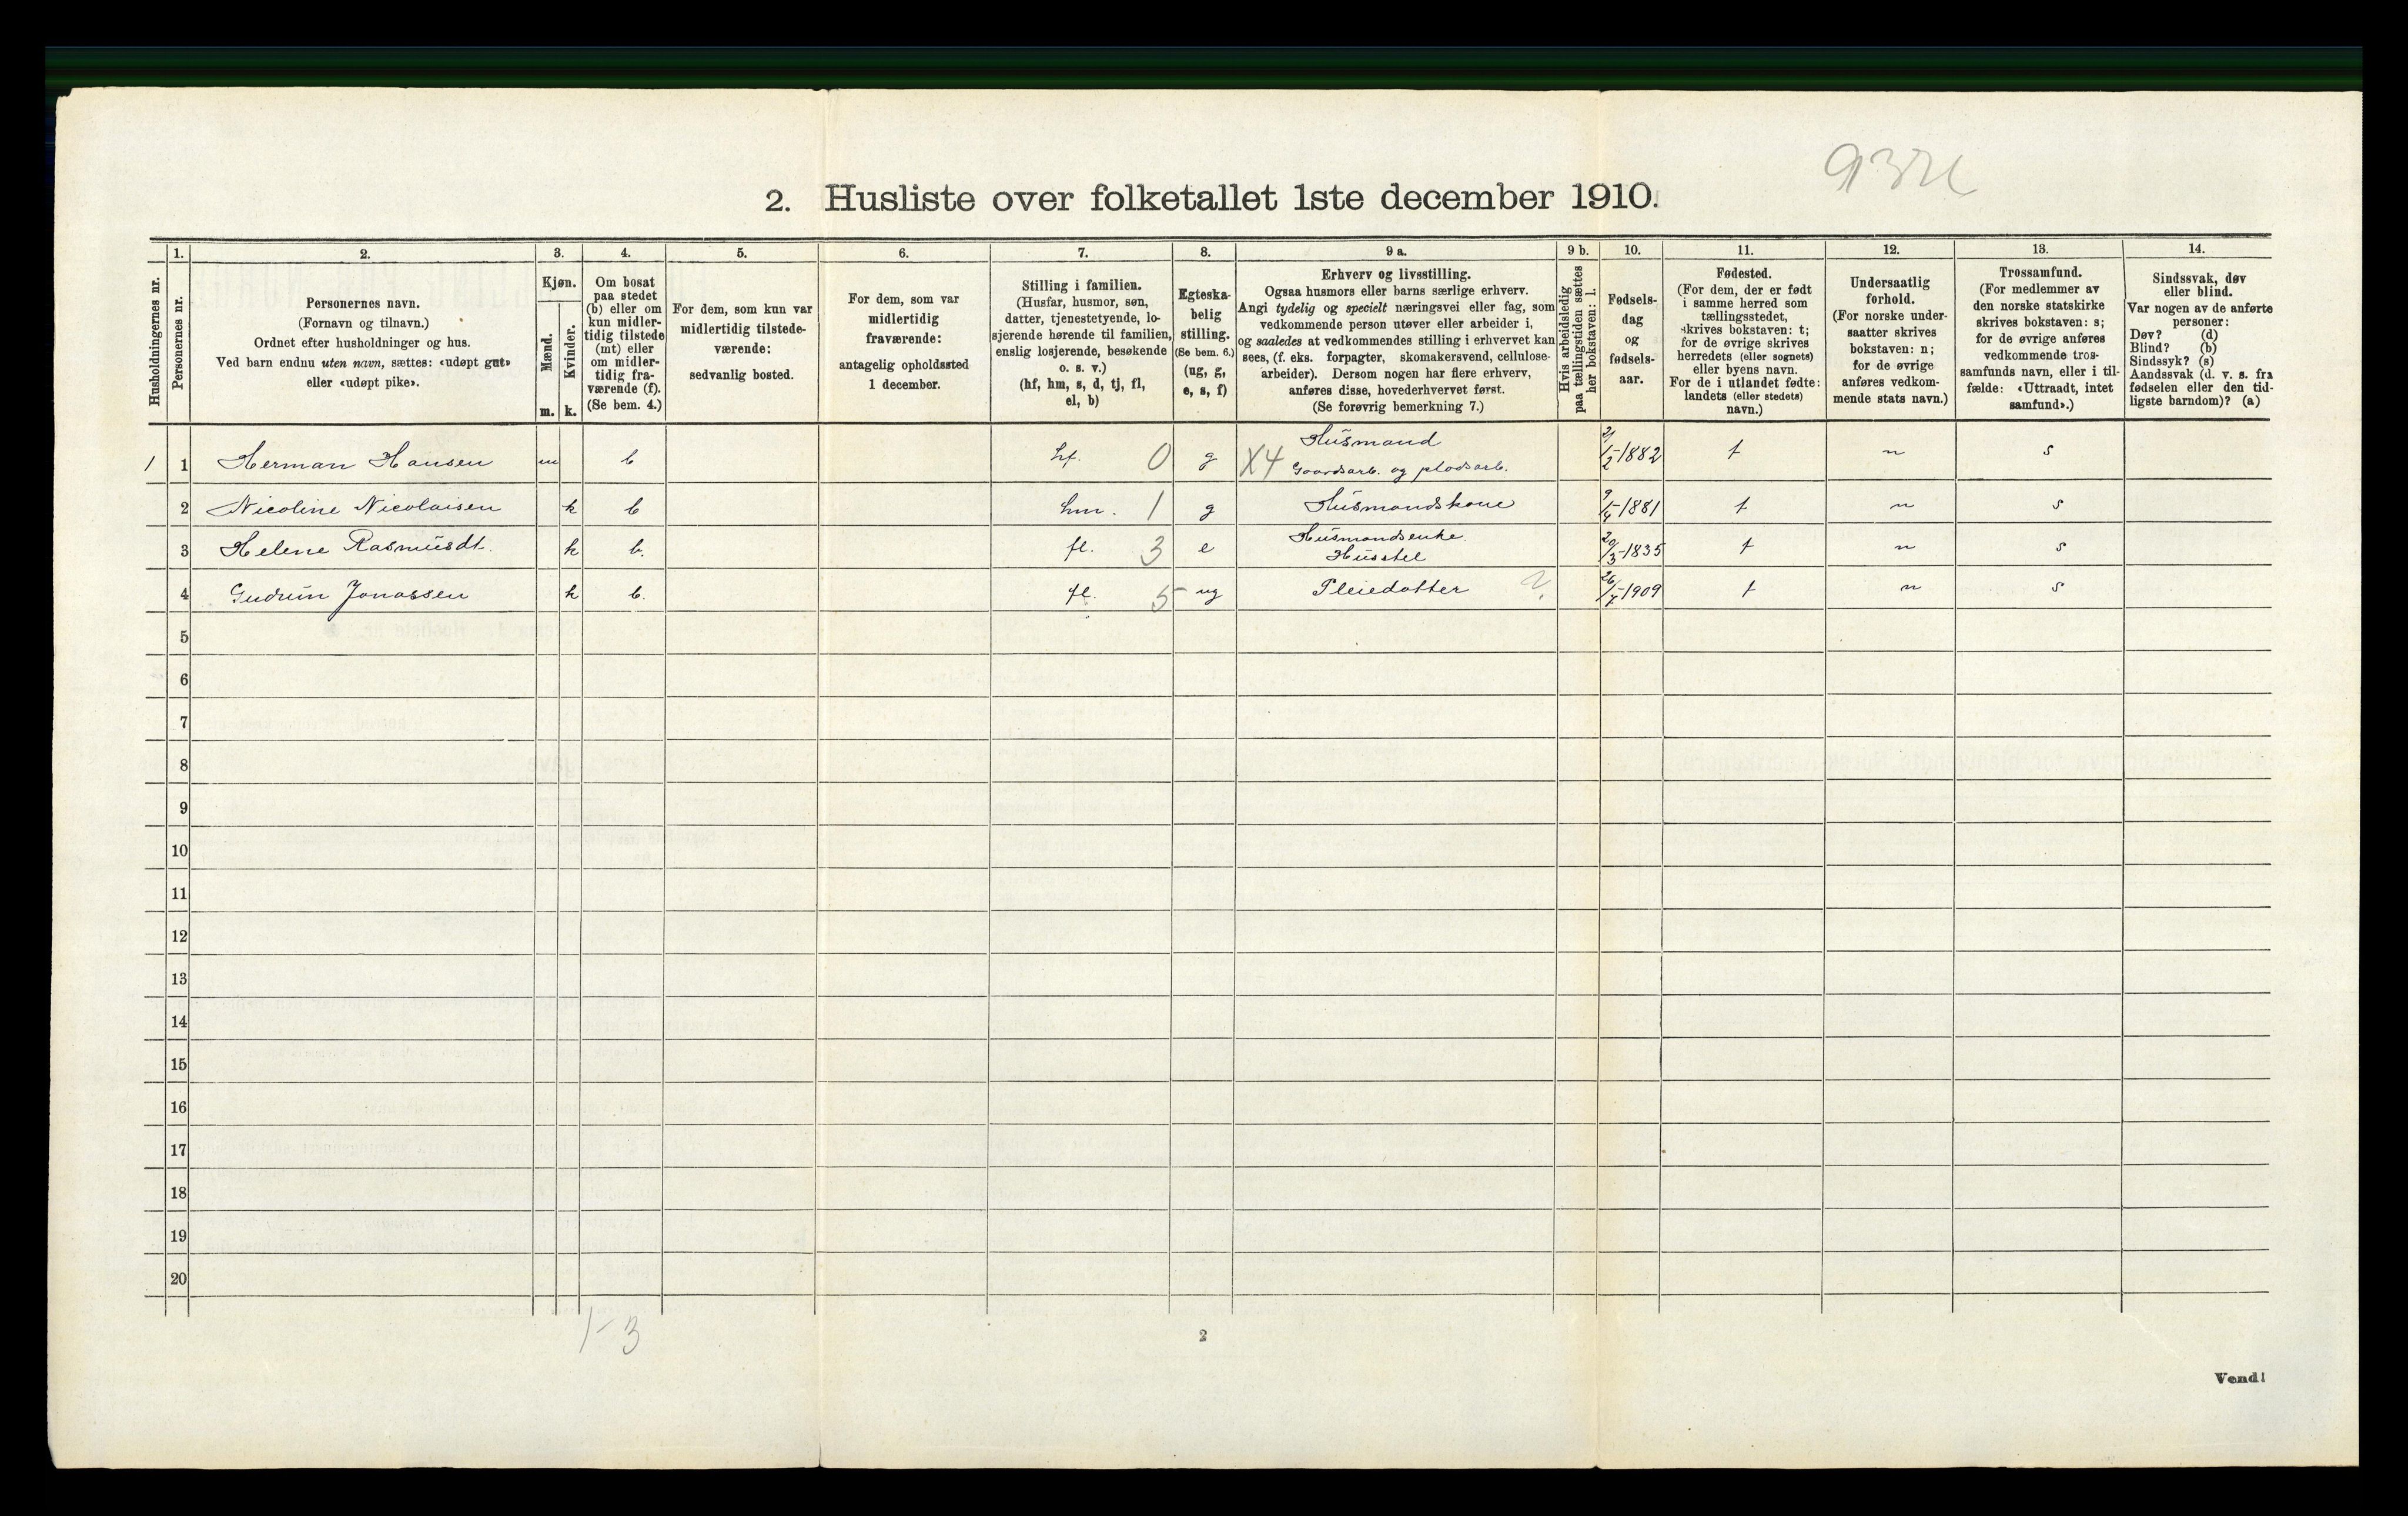 2. Husliste over folketallet 1ste december 1910.
1. 2. 3. 4. 5. 6. 7. 8. 9 a. 9 b. 10. 11. 12. 13. 14.
Husholdningernes nr.
Personernes nr.
Personernes navn.
(Fornavn og tilnavn.)
Ordnet efter husholdninger og hus.
Ved barn endnu uten navn, sættes: «udøpt gut»
eller «udøpt pike».
Kjøn.
Mænd.
Kvinder.
m. k.
Om bosat
paa stedet
(b) eller om
kun midler-
tidig tilstede
(mt) eller
om midler-
tidig fra-
værende (f).
(Se bem. 4.)
For dem, som kun var
midlertidig tilstede-
værende:
sedvanlig bosted.
For dem, som var
midlertidig
fraværende:
antagelig opholdssted
1 december.
Stilling i familien.
(Husfar, husmor, søn,
datter, tjenestetyende, lo-
sjerende hørende til familien,
enslig losjerende, besøkende
o. s. v.)
(hf, hm, s, d, tj, fl,
el, b)
Egteska-
belig
stilling.
(Se bem. 6.)
(ug, g,
e, s, f)
Erhverv og livsstilling.
Ogsaa husmors eller barns særlige erhverv.
Angi tydelig og specielt næringsvei eller fag, som
vedkommende person utøver eller arbeider i,
og saaledes at vedkommendes stilling i erhvervet kan
sees, (f. eks. forpagter, skomakersvend, cellulose-
arbeider). Dersom nogen har flere erhverv,
anføres disse, hovederhvervet først.
(Se forøvrig bemerkning 7.)
Hvis arbeidsledig
paa tællingstiden sættes
her bokstaven: l.
Fødsels-
dag
og
fødsels-
aar.
Fødested.
(For dem, der er født
i samme herred som
tællingsstedet,
skrives bokstaven: t;
for de øvrige skrives
herredets (eller sognets)
eller byens navn.
For de i utlandet fødte:
landets (eller stedets)
navn.)
Undersaatlig
forhold.
(For norske under-
saatter skrives
bokstaven: n;
for de øvrige
anføres vedkom-
mende stats navn.)
Trossamfund.
(For medlemmer av
den norske statskirke
skrives bokstaven: s;
for de øvrige anføres
vedkommende tros-
samfunds navn, eller i til-
fælde: «Uttraadt, intet
samfund».)
Sindssvak, døv
eller blind.
Var nogen av de anførte
personer:
Døv? (d)
Blind? (b)
Sindssyk? (s)
Aandssvak (d. v. s. fra
fødselen eller den tid-
ligste barndom)? (a)
1 1 Herman Hansen m b hf. 0 g X4 Husmand 21/2-1882 t n s
Gaardsarb. og pladsarb.
2 Nicoline Nicolaisen k b hm. 1 g Husmandskone 9/4-1881 t n s
3 Helene Rasmusdt. k b. fl. 3 e Husmandsenke 20/3-1835 t n s
Husstel
4 Gudrun Jonassen k b. fl. 5 ug Pleiedatter ? 26/7-1909 t n s
5
6
7
8
9
10
11
12
13
14
15
16
17
18
19
20
1-3
2
Vend!